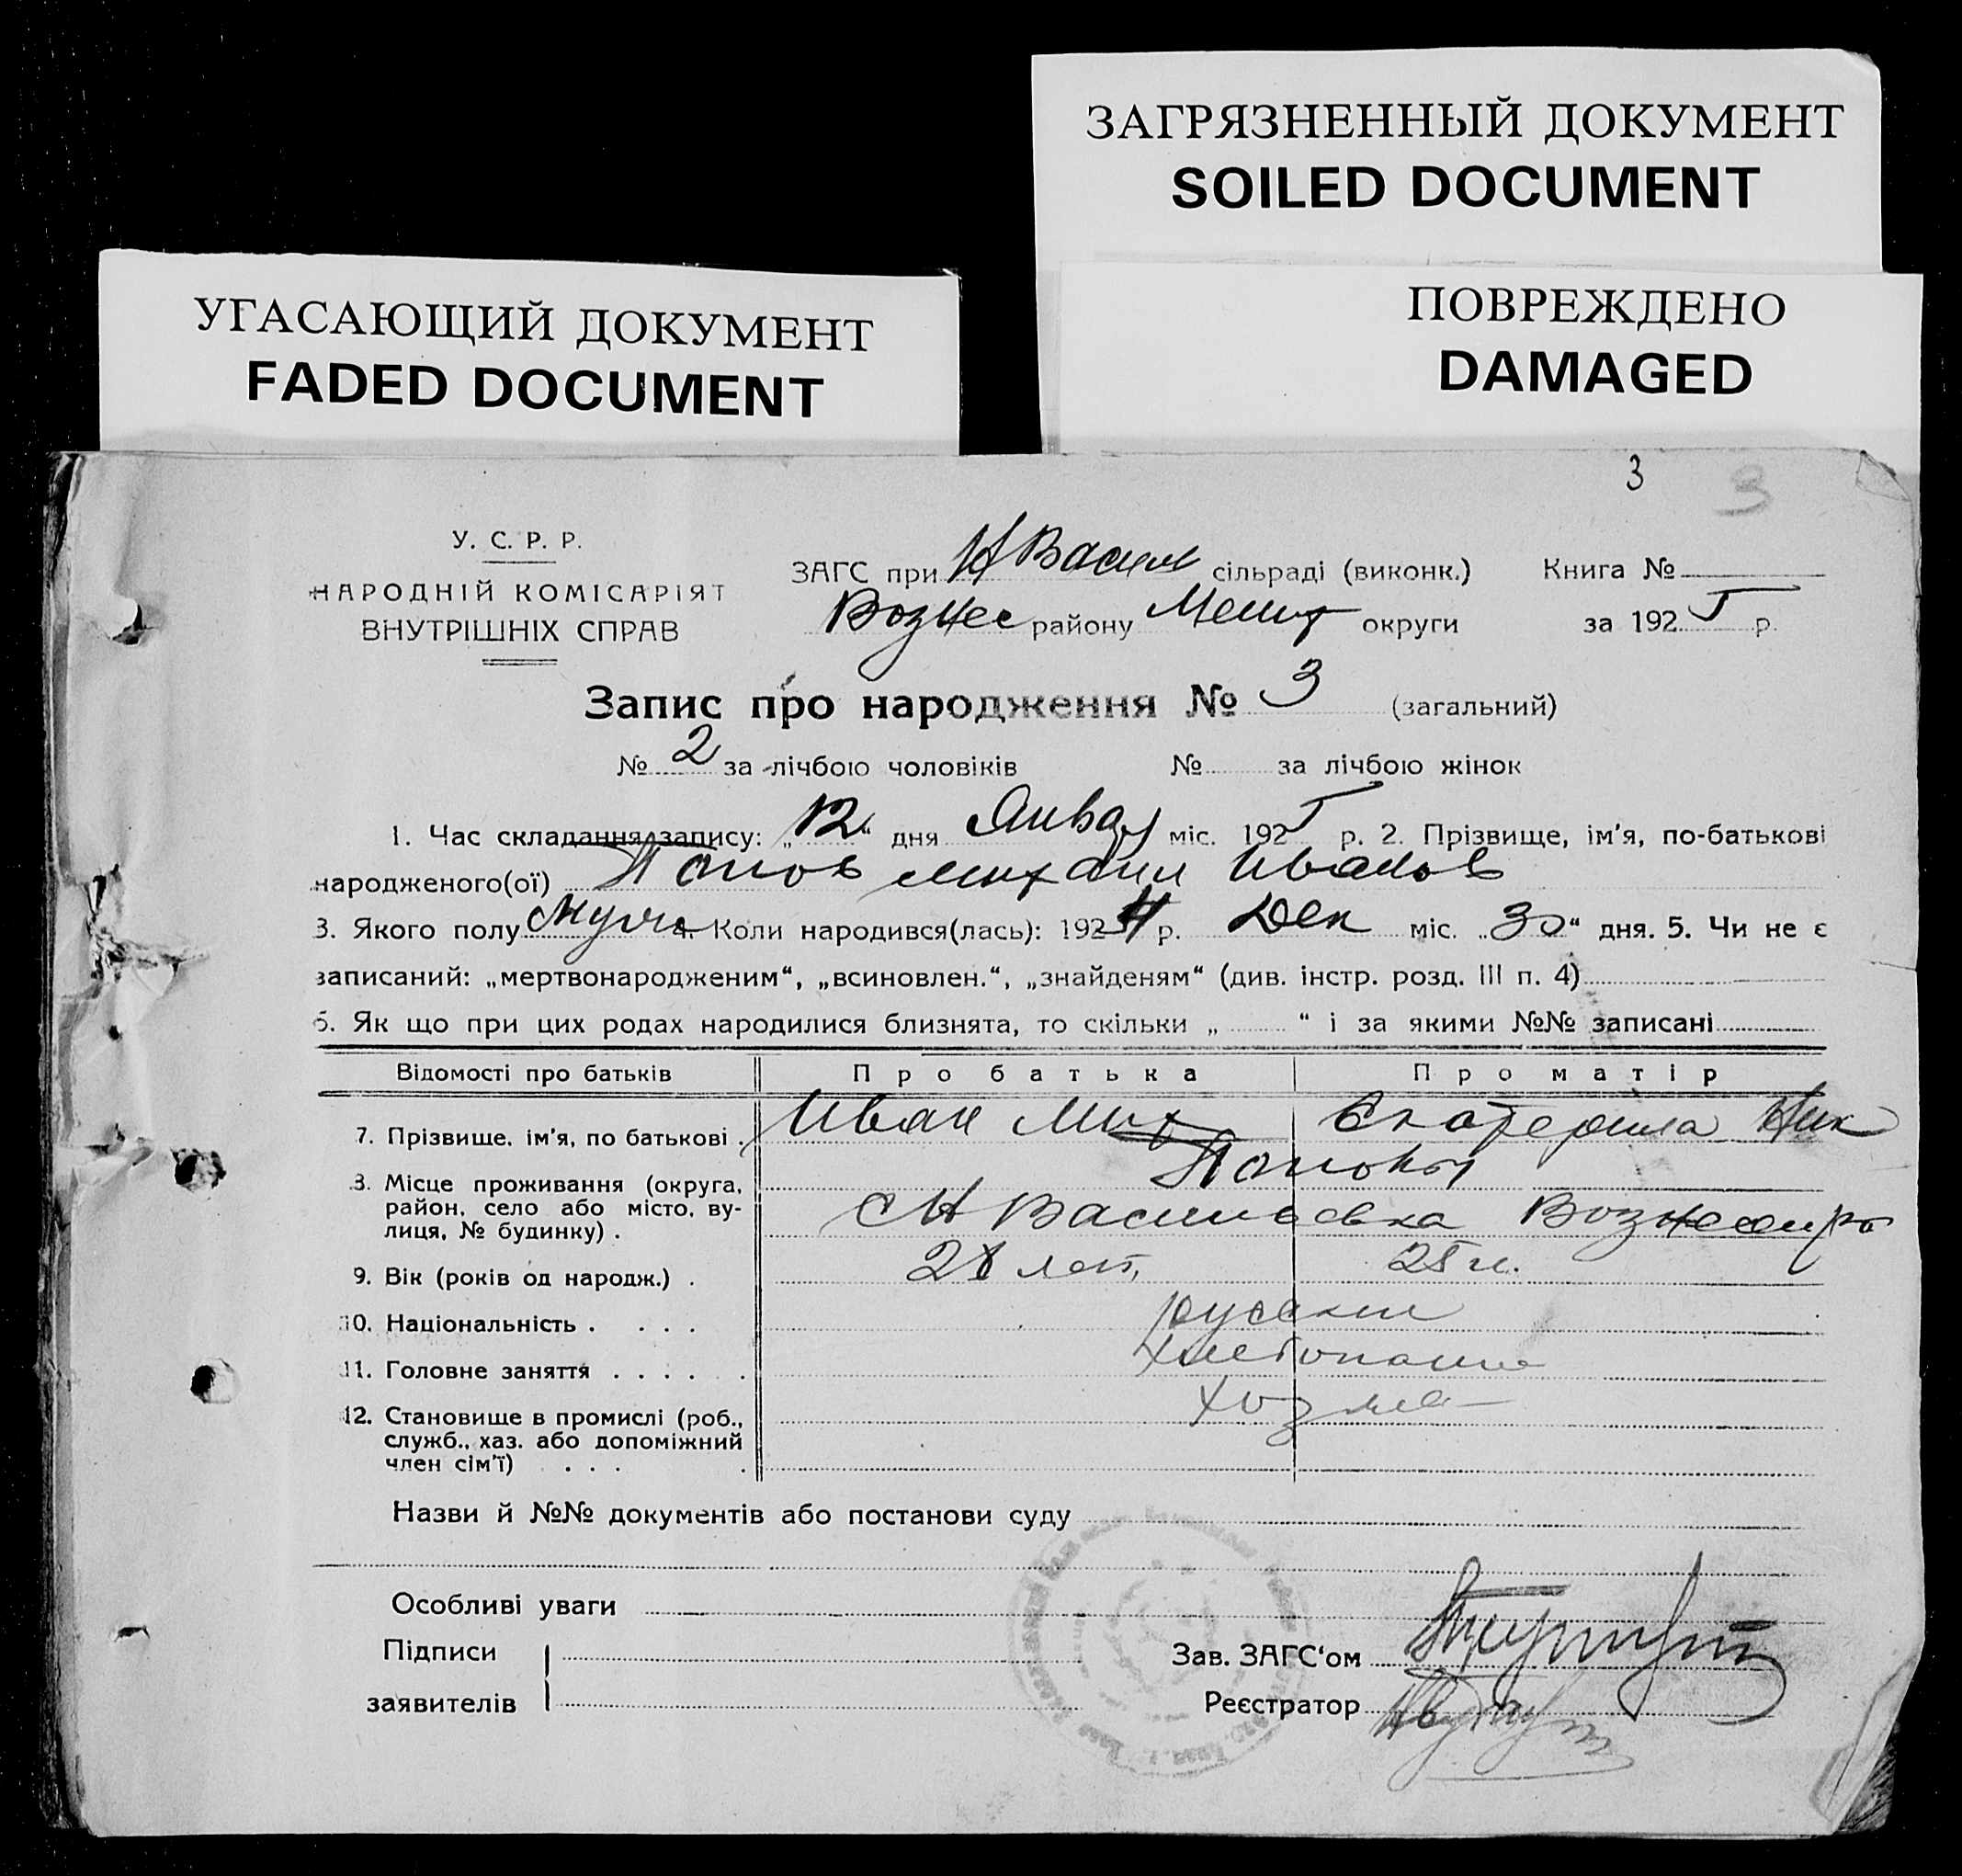 ЗАГРЯЗНЕННЫЙ ДОКУМЕНТ
SOILED DOCUMENT
УГАСАЮЩИЙ ДОКУМЕНТ
FADED DOCUMENT
ПОВРЕЖДЕНО
DAMAGED
3 3
У. С. Р. Р.
НАРОДНІЙ КОМІСАРІЯТ
ВНУТРІШНІХ СПРАВ
ЗАГС при Н Васил сільраді (виконк.) Книга №
Вознес району Мелит округи за 1925 р.
Запис про народження № 3 (загальний)
№ 2 за лічбою чоловіків № за лічбою жінок
1. Час складання запису: „12“ дня Январ міс. 1925 р. 2. Прізвище, ім'я, по-батькові
народженого(ої) Попов Михаил Иванов
3. Якого полу Мужс 4. Коли народився(лась): 1924 р. Дек міс. „30“ дня. 5. Чи не є
записаний: „мертвонародженим“, „всиновлен.“, „знайденям“ (див. інстр. розд. III п. 4)
6. Як що при цих родах народилися близнята, то скільки „ “ і за якими №№ записані
Відомості про батьків Про батька Про матір
7. Прізвище, ім'я, по батькові . Иван Мих Екатерина Ник
Поповы
8. Місце проживання (округа,
район, село або місто, ву-
лиця, № будинку) . С Н Васильевка
9. Вік (років од народж.) . 28 лет, 25 л.
10. Національність . . . . русские
11. Головне заняття . . . . . .
12. Становище в промислі (роб.,
служб., хаз. або допоміжний
член сім'ї) . . . .
Назви й №№ документів або постанови суду
Особливі уваги
Підписи
заявителів
Зав. ЗАГС'ом
Реєстратор